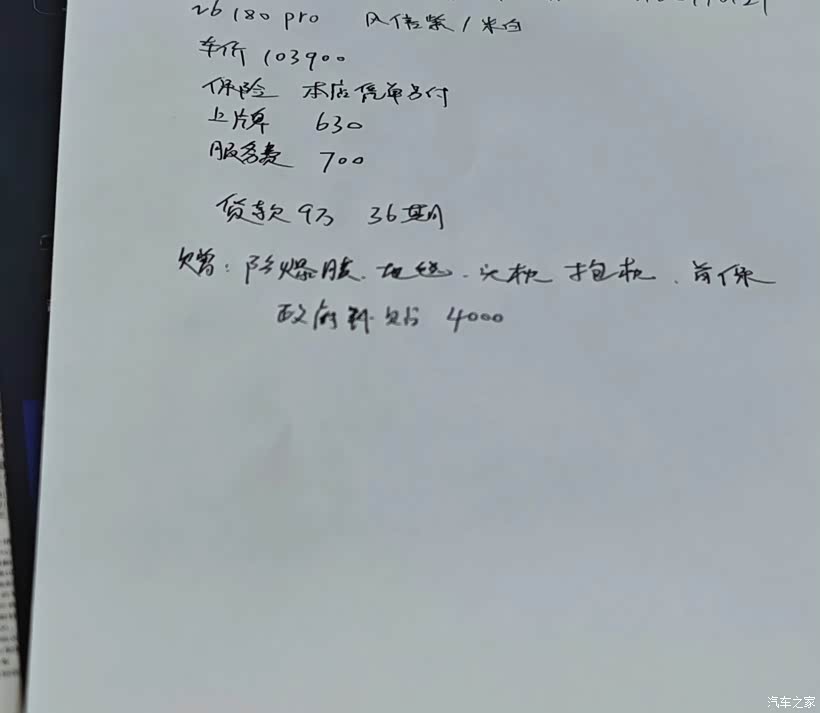 26 180 pro 风信紫/米白
车价 103900
保险 本店凭单另付
上牌 630
服务费 700
贷款 9万 36期
赠: 防爆膜. 地毯. 头枕 抱枕. 首保
政府补贴 4000
汽车之家